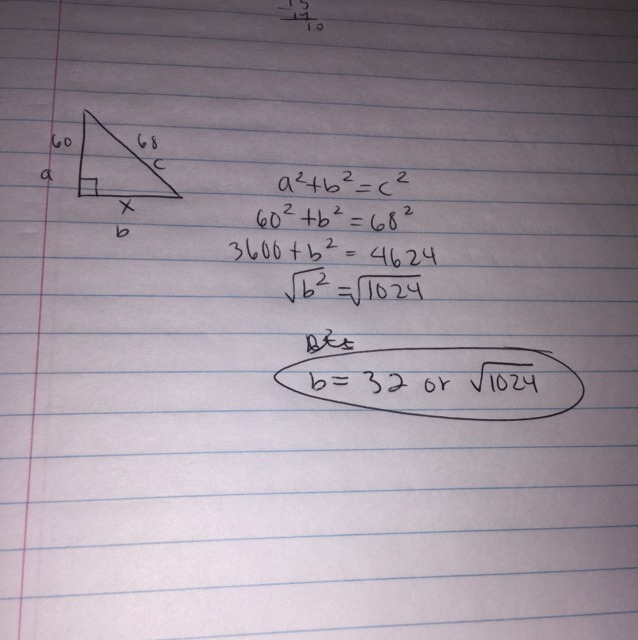 60
68
a
c
x
b
a²+b²=c²
60²+b²=68²
3600+b²=4624
√b²=√1024
b=32 or √1024